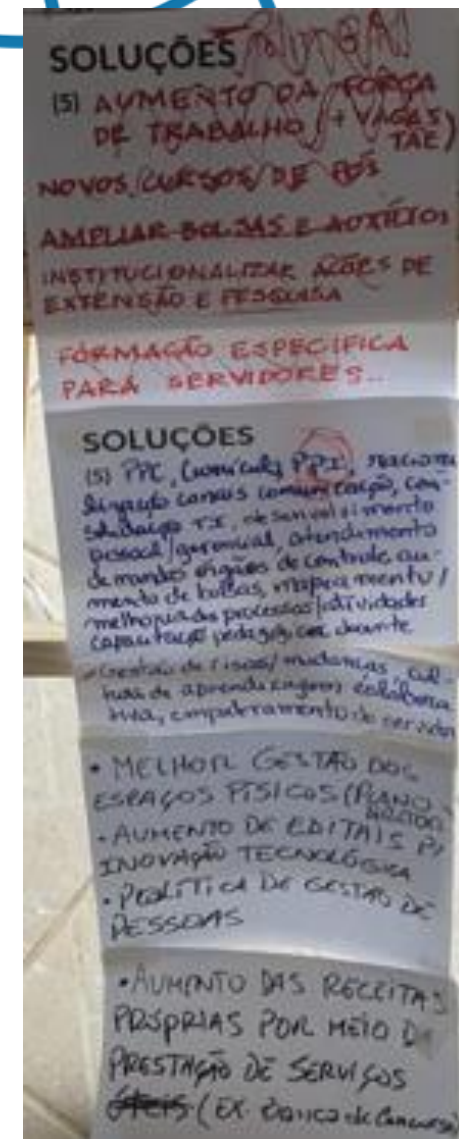 SOLUÇÕES
(5) AUMENTO DA FORÇA
DE TRABALHO (+ VAGAS
TAE)
NOVOS CURSOS DE PÓS
AMPLIAR BOLSAS E AUXÍLIOS
INSTITUCIONALIZAR AÇÕES DE
EXTENSÃO E PESQUISA
FORMAÇÃO ESPECÍFICA
PARA SERVIDORES...
SOLUÇÕES
(5) PPC, Currículo, PPI,
canais comunicação, con-
solidação TI, desenvolvimento
pessoal/gerencial, atendimento
demandas órgãos de controle, au-
mento de bolsas, mapeamento/
melhoria dos processos/atividades
capacitação pedagógica docente
Gestão de riscos/mudanças, cul-
tura de aprendizagem colabora
tiva, empoderamento do servidor
• MELHOR GESTÃO DOS
ESPAÇOS FÍSICOS (PLANO
DIRETOR)
• AUMENTO DE EDITAIS P/
INOVAÇÃO TECNOLÓGICA
• POLÍTICA DE GESTÃO DE
PESSOAS
• AUMENTO DAS RECEITAS
PRÓPRIAS POR MEIO DA
PRESTAÇÃO DE SERVIÇOS
(EX. Banca de Concurso)